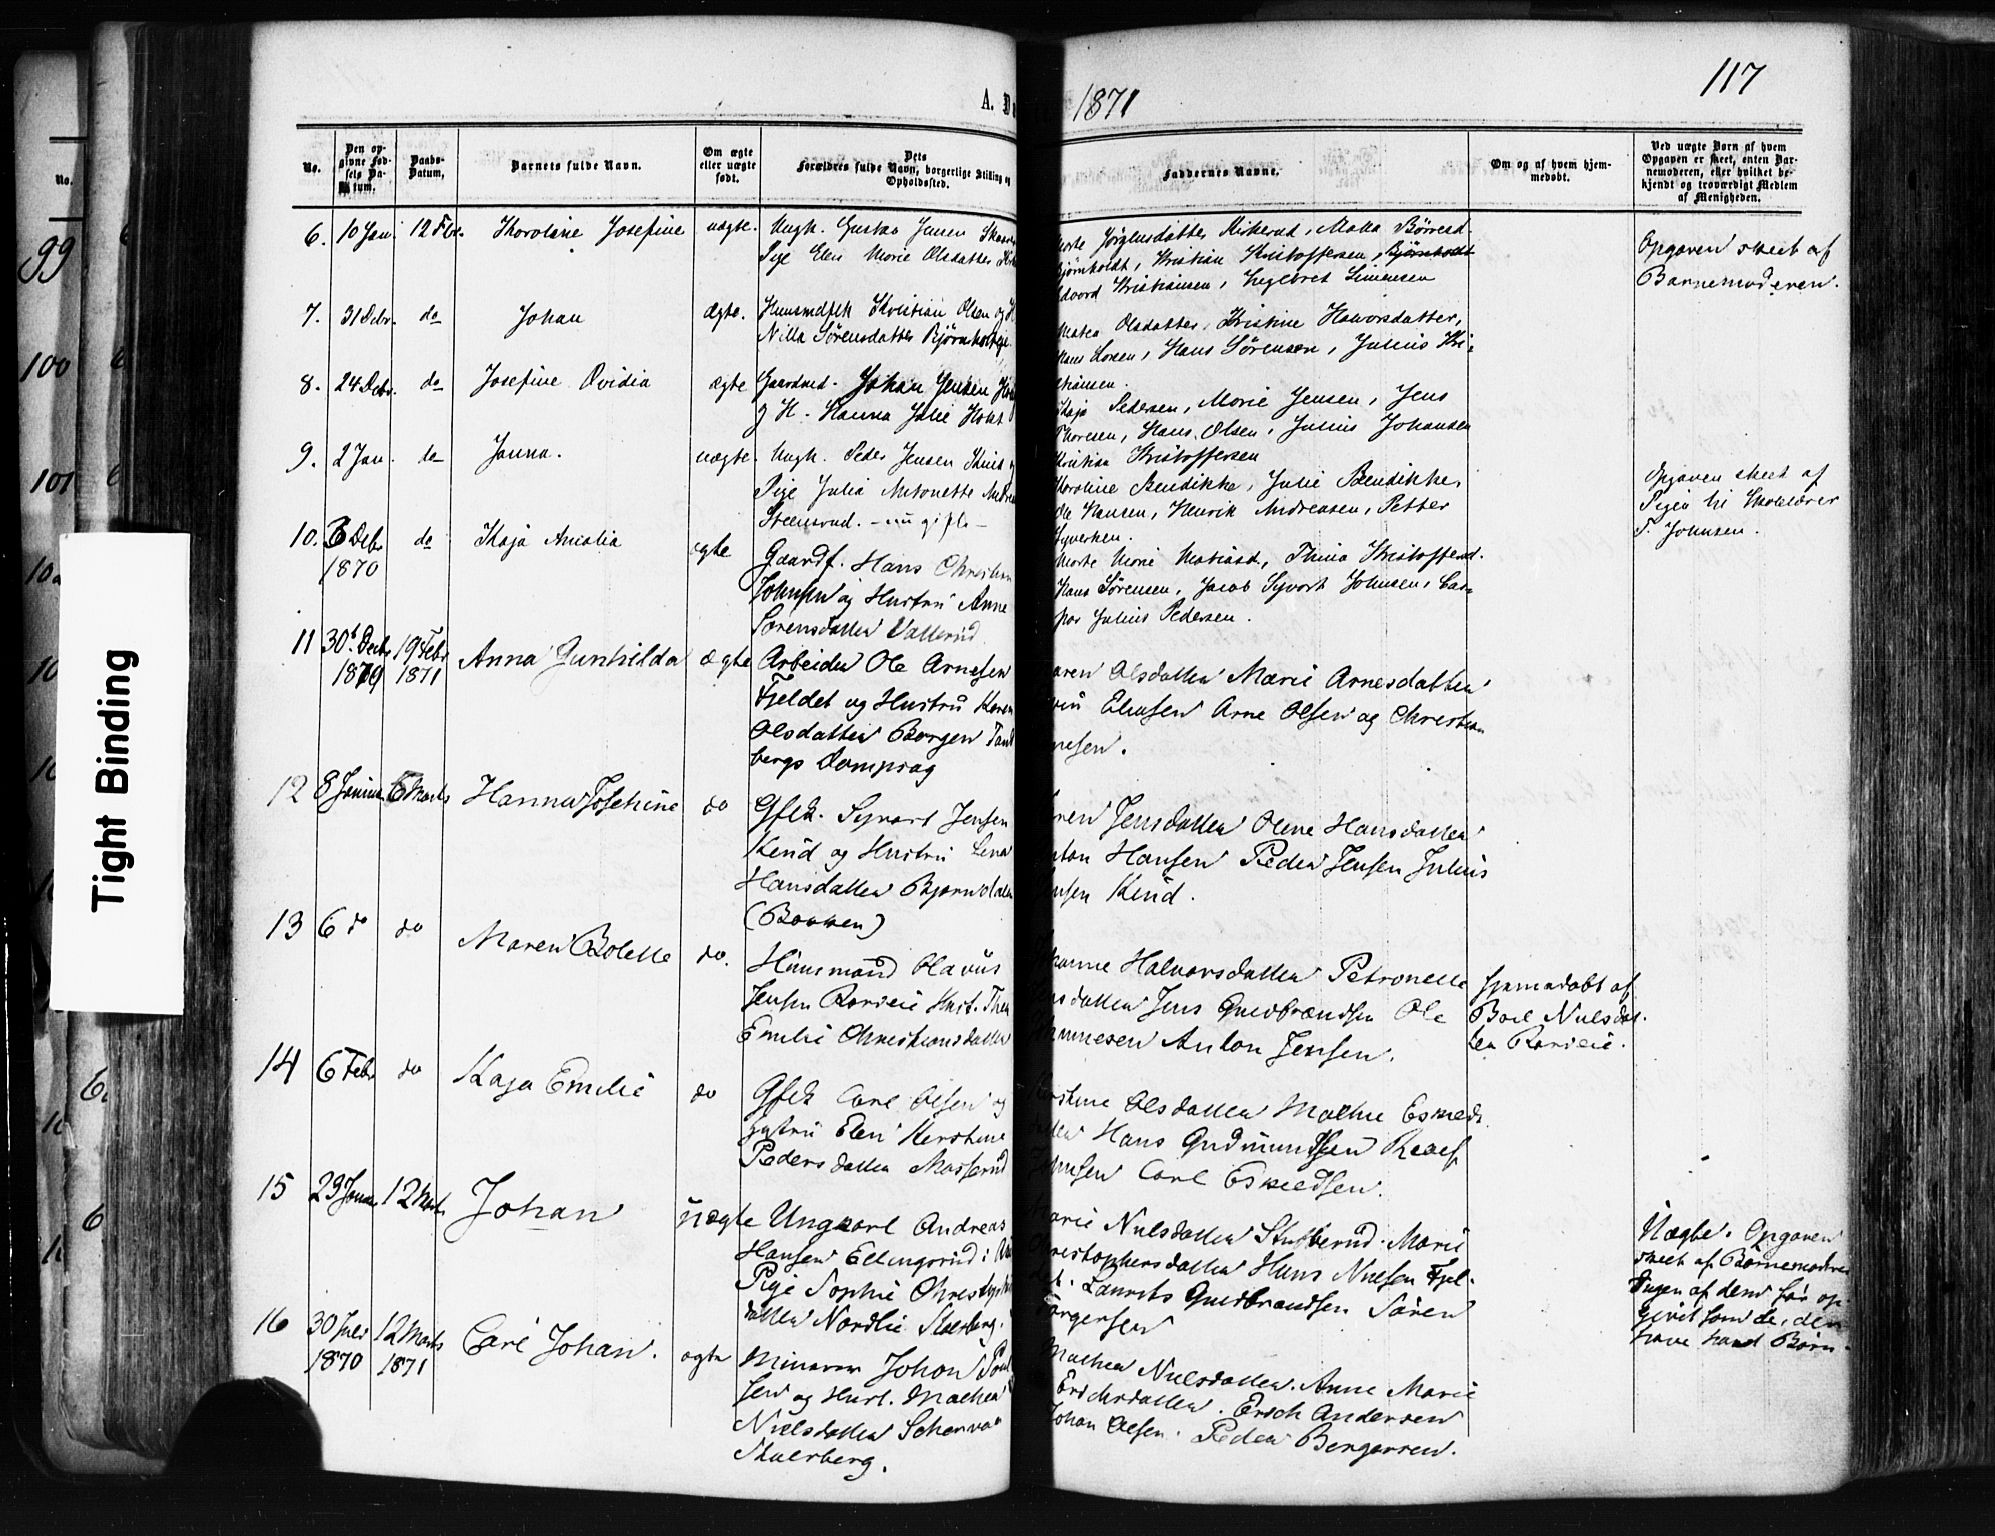 117
A. D
1871
No.
Den opgivne Fødsels Datum.
Daabs-Datum.
Barnets fulde Navn.
Om ægte eller uægte født.
Dets Forældres fulde Navn, borgerlige Stilling og Opholdssted.
Faddernes Navne.
Om og af hvem hjemmedøbt.
Ved uægte Børn af hvem Opgaven er skeet, enten Barnemoderen, eller hvilket bekjendt og troværdigt Medlem af Menigheden.
6. 10 Jan. 12 Fbr. Karoline Josefine uægte. Ungk. Gustav Jensen
Pige Elen Marie Olsdatter
Jørgensdatter Kikerud, Mathea Børresd.
Bjørnholdt, Kristian Kristoffersen, Bjørnholdt
Kristiansen, Engebret Simensen
Opgaven skeet af
Barnemoderen.
7. 31 Debr. do Johan ægte. Huusmdfolk Kristian Olsen og H
Nilla Sørensdatter Bjørnholdteje
Olsdatter, Kristine Halvorsdatter,
Hans Larsen, Hans Sørensen, Julius Kri-
stiansen.
8. 24 Debr. do Josefine Ovidia ægte Gaardmd. Johan Jensen
g H. Hanna Julie
Kaja Pedersen, Marie Jensen, Jens
Thoresen, Hans Olsen, Julius Johansen
Kristian Kristoffersen
9. 2 Jan. do Janna. uægte. Ungk. Peder Jensen
Pige Julia Antonette
Steensrud. - nu gifte -
Karoline Bendikke, Julie Bendikke,
Ole Hansen, Henrik Andreasen, Petter
Syversen.
Opgaven skeet af
Pigen til Skolelærer
T. Johnsen.
10. 6 Debr 1870 do Kaja Amalia ægte Gaardf. Hans Christian
Johnsen og Hustru Anne
Sørensdatter Vallerud
Marte Marie Matiasd., Thina Kristoffersd.
Hans Sørensen, Jacob Syvert Johnsen, Cas-
per Julius Pedersen.
11 30t Decbr 1870 19 Febr 1871 Anna Gunhilda ægte Arbeider Ole Arnesen
Fjeldet og Hustru Karen
Olsdatter Borgen Tand
bergs Dampsag
Karen Olsdatter Marie Arnesdatter
Arne Olsen og Christian
nesen.
12 8 Januar 5 Marts Hanna Josefine do Gflk. Syvart Jensen
Kind og Hustru Lena
Hansdatter Bjørndalen
(Bakken)
Jensdatter Olene Hansdatter
Anton Hansen Peder Jensen Julius
Jensen Kind.
13 6 do do Maren Bolette do. Huusmand Olavus
Jensen Rørveie Hust. Thea
Emilie Christiansdatter
Halvorsdatter Petronelle
datter Jens Gudbrandsen Ole
Hannesen Anton Jensen.
hjemmedøbt af
Boel Nielsdat-
ter Rørveie.
14 6 Febr do Kaja Emilie do Gflk Carl Olsen og
Hustru Elen Kerstine
Pedersdatter Masserud
Kerstine Olsdatter Mathie Eskeds
datter Hans Gudmundsen Roalf
Jensen Carl Eskedsen.
15 29 Januar 12 Marts Johan uægte Ungkarl Andreas
Hansen Ellingsrud i
Pige Sophie Christophers
datter Nordlie Skærberg.
Marie Nielsdatter Stubberud. Marie
Christophersdatter Hans Nielsen Fjel-
det. Laurits Gudbrandsen Søren
Jørgensen
Uægte. Opgaven
skeet af Barnemoderen
Ingen af dem før op-
givet som de, der
have havd Børn.
16 30 Juli 1870 12 Marts 1871 Carl Johan. ægte Minerer Johan Poul
sen og Hust. Mathea
Nielsdatter
Skærberg.
Mathea Nielsdatter. Anne Marie
Erichsdatter. Erich Andersen
Johan Olsen. Peder Bergersen.
Tight Binding
No.
99
100
101